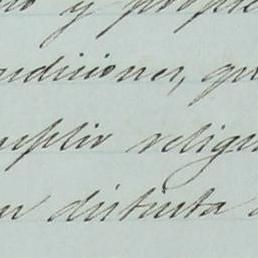 y propie
ndiciones, qu
mplir religi
en distinta